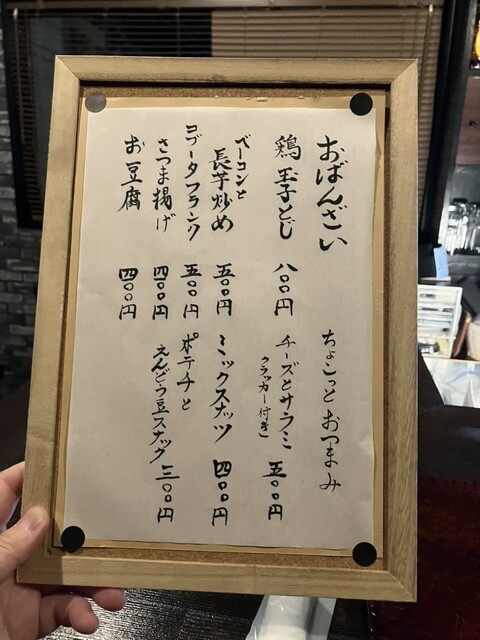 おばんざい
鶏玉子とじ 八〇〇円
ベーコンと
長芋炒め 五〇〇円
コブータフランク 五〇〇円
さつま揚げ 四〇〇円
お豆腐 四〇〇円
ちょこっとおつまみ
チーズとサラミ 五〇〇円
クラッカー付き
ミックスナッツ 四〇〇円
ポテチと
えんどう豆スナック 三〇〇円